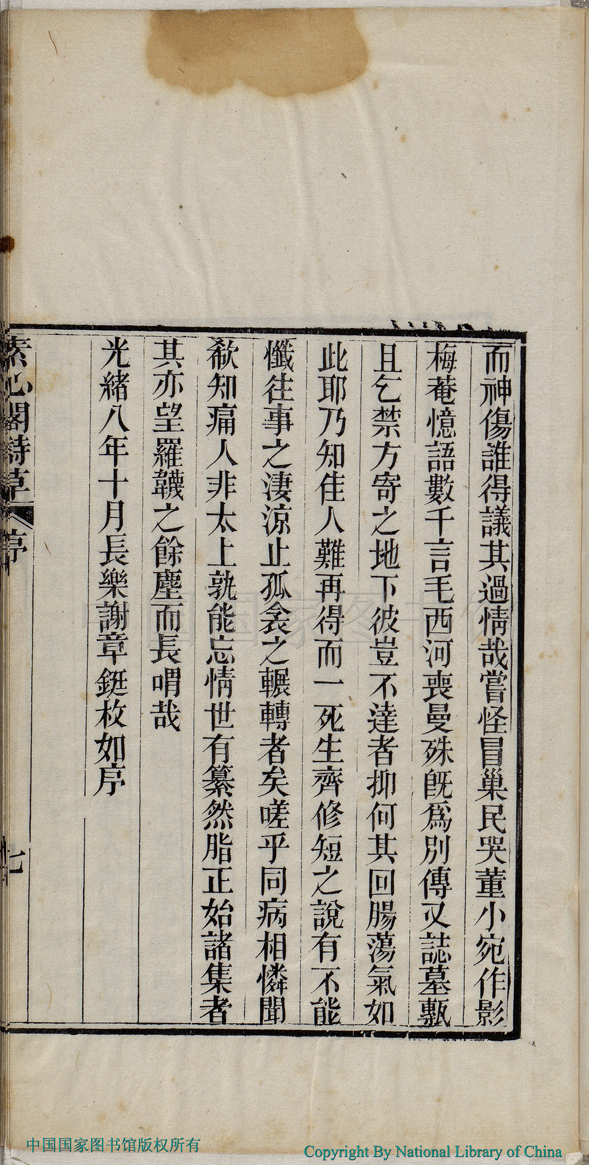 而神傷誰得議其過情哉嘗怪冒巢民哭董小宛作影
梅菴憶語數千言毛西河喪曼殊旣爲別傳又誌墓甎
且乞禁方寄之地下彼豈不達者抑何其回腸蕩氣如
此耶乃知佳人難再得而一死生齊修短之說有不能
懺往事之淒涼止孤衾之輾轉者矣嗟乎同病相憐聞
欷知痛人非太上孰能忘情世有纂然脂正始諸集者
其亦望羅韤之餘塵而長喟哉
光緒八年十月長樂謝章鋌枚如序
素心閣詩草 序 七
中国国家图书馆
中国国家图书馆版权所有
Copyright By National Library of China